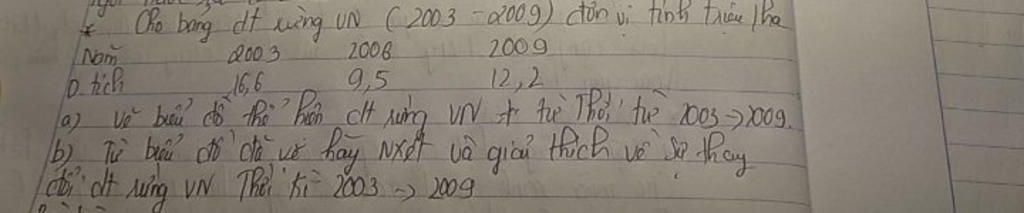 * Cho bảng dt rừng VN (2003 - 2009) đơn vị tính triệu / ha
Năm 2003 2008 2009
D. tích 16,6 9,5 12,2
a) vẽ biểu đồ thể hiện dt rừng VN từ Thời từ 2003 -> 2009.
b) Từ biểu đồ đã vẽ hãy NXét và giải thích về sự thay
đổi dt rừng VN Thời kì 2003 -> 2009